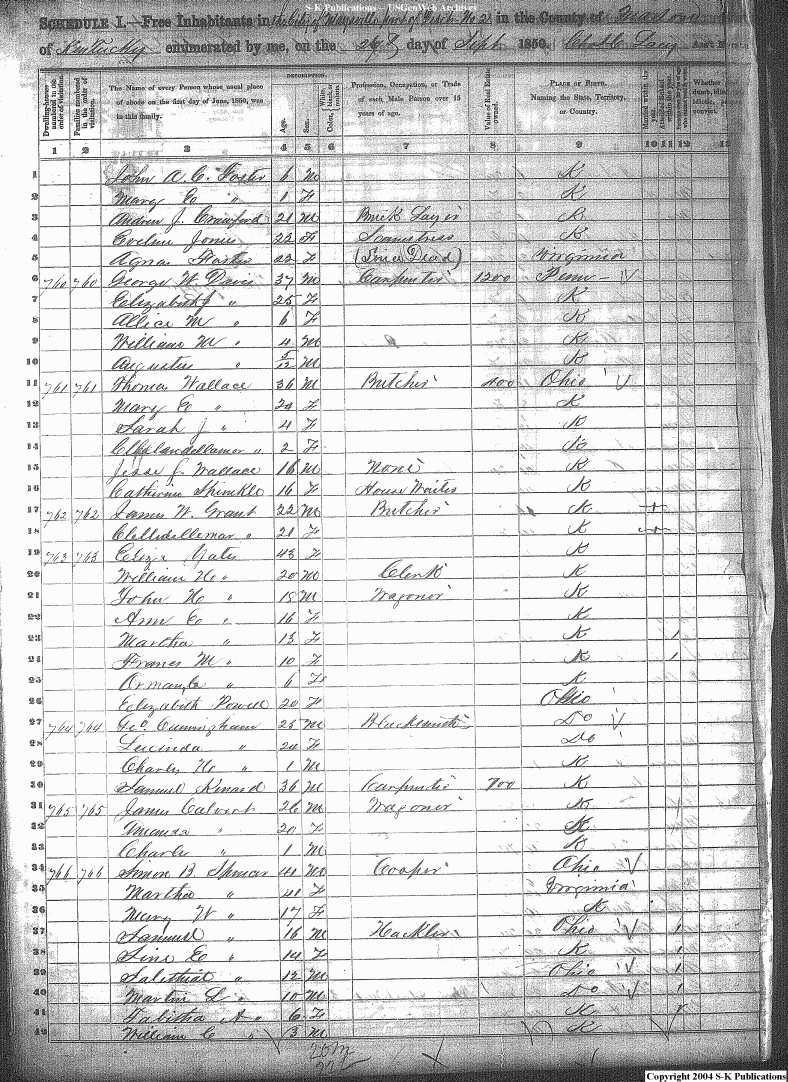 S-K Publications - USGenWeb Archives
SCHEDULE I.—Free Inhabitants in the City of Maysville part of District No 2 in the County of Mason
of Kentucky enumerated by me, on the 26th day of Sept. 1850.
DESCRIPTION.
Dwelling-houses numbered in the order of visitation.
Families numbered in the order of visitation.
The Name of every Person whose usual place of abode on the first day of June, 1850, was in this family.
Age.
Sex.
White, black, or mulatto. Color,
Profession, Occupation, or Trade of each Male Person over 15 years of age.
Value of Real Estate owned.
PLACE OF BIRTH. Naming the State, Territory, or Country.
Married within the year.
1 2 3 4 5 6 7 8 9 10 11 12 13
1 John A. C. Foster 6 M K
2 Mary E " 1 F K
3 Andrew J. Crawford 21 M Brick Layer K
4 Eveline Jones 22 F Seamstress K
5 Agnes Foster 22 F (Since Dead) Virginia
6 760 760 George W. Davis 37 M Carpenter 1200 Penn - V
7 Elizabeth J " 25 F K
8 Allice M " 6 F K
9 William M " 4 M K
10 Augustus " 5/12 M K
11 761 761 Thomas Wallace 36 M Butcher 400 Ohio V
12 Mary E " 24 F K
13 Sarah J " 4 F K
14 " 2 F K
15 Jesse J. Wallace 16 M None K
16 Catherine Shinkle 16 F House Waiter K
17 762 762 James W. Grant 22 M Butcher K +
18 " 21 F K +
19 763 763 Eliza Yates 43 F K
20 William H " 20 M Clerk K
21 John H " 18 M Wagoner K
22 Ann E " 16 F K
23 Martha " 13 F K 1
24 Frances M " 10 F K 1
25 " 6 F K
26 Elizabeth Powell 20 F Ohio
27 764 764 Geo. Cunningham 25 M Blacksmith Do V
28 Lucinda " 24 F Do
29 Charles H " 1 M K
30 Samuel Kinard 36 M Carpenter 700 K
31 765 765 James Calvert 26 M Wagoner K
32 Amanda " 20 F K
33 Charles " 1 M K
34 766 766 Simon B Spencer 41 M Cooper Ohio V
35 Martha " 41 F Virginia
36 Mary W " 17 F K
37 Samuel " 16 M Hackler Ohio V 1
38 " 14 F K 1
39 Salithial " 12 M Ohio V 1
40 Martin L " 10 M Do V 1
41 Tabitha A " 6 F K
42 William C " 3 M K
20 M
22 F
Copyright 2004 S-K Publications